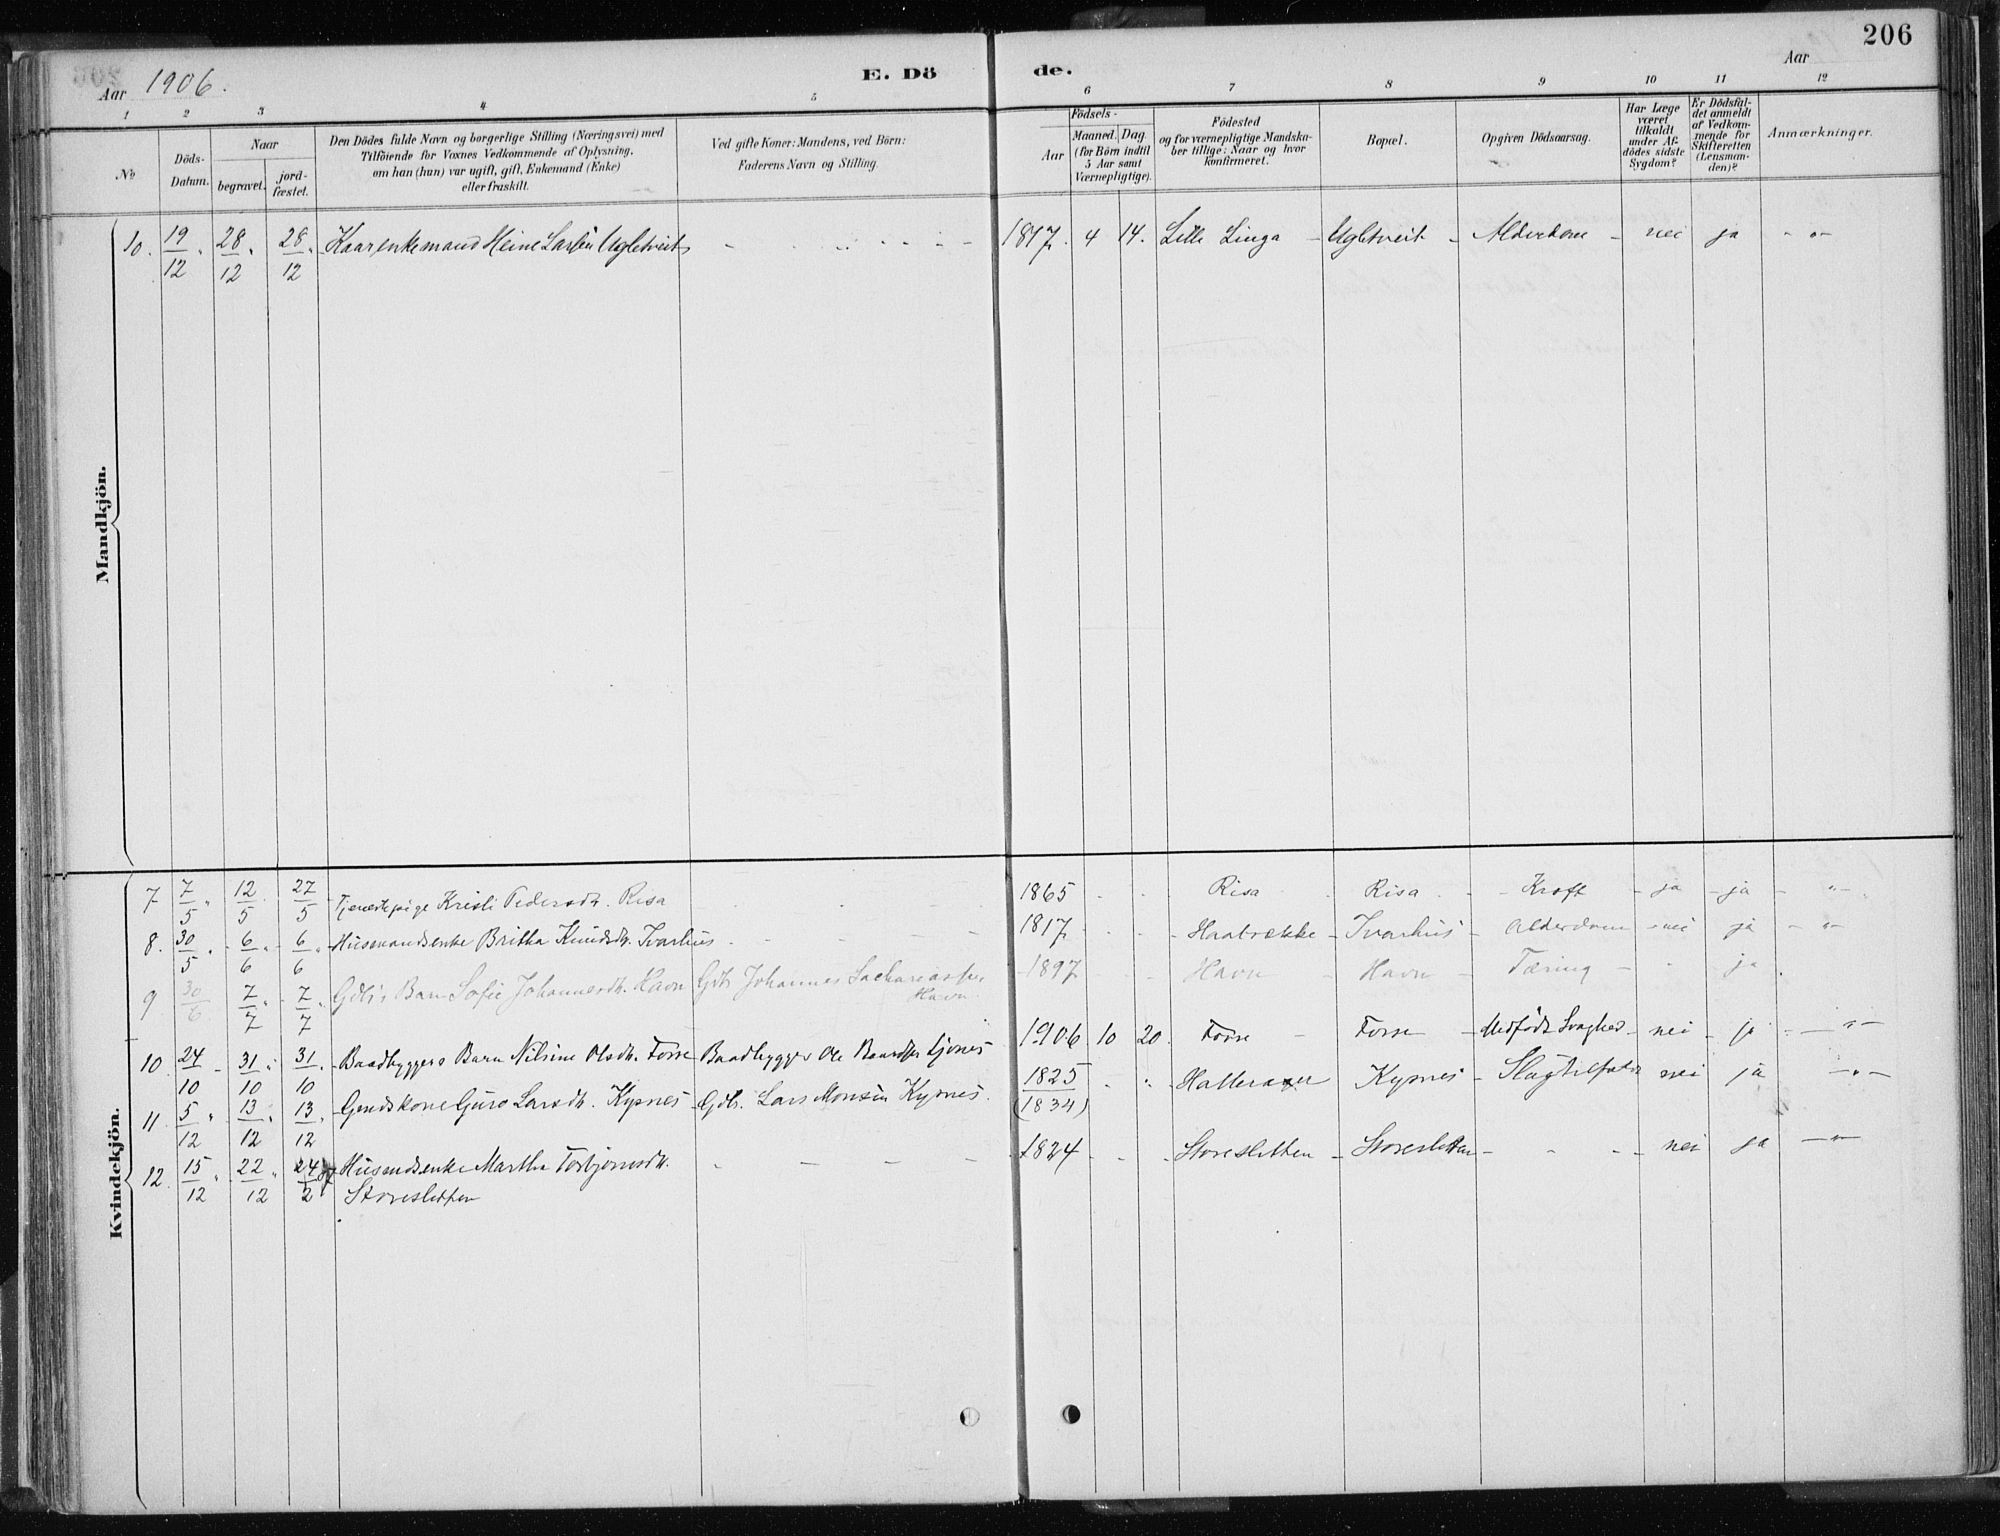 206
Aar 1906.
E. Dö
de.
Aar
1 2 3 4 5 6 7 8 9 10 11 12
No
Döds-Datum.
Naar
begravet.
jord-fæstet.
Den Dödes fulde Navn og borgerlige Stilling (Næringsvei) med
Tilföiende for Voxnes Vedkommende af Oplysning,
om han (hun) var ugift, gift, Enkemand (Enke)
eller fraskilt.
Ved gifte Koner: Mandens, ved Børn:
Faderens Navn og Stilling.
Födsels-
Aar
Maaned. Dag.
(for Börn indtil
5 Aar samt
Værnepligtige).
Födested
og for værnepligtige Mandska-
ber tillige: Naar og hvor
konfirmeret.
Bopæl.
Opgiven Dödsaarsag.
Har Læge
været
tilkaldt
under Af-
dödes sidste
Sygdom?
Er Dödsfal-
det anmeldt
af Vedkom-
mende for
Skifteretten
(Lensman-
den)?
Anmærkninger.
Mandkjön.
10. 19/12 28/12 28/12 Kaarenkemand Heine Larsen Ugletveit 1817. 4 14. Lille Linga Ugletveit Alderdom nei ja - " -
Kvindekjön.
7 7/5 12/5 27/5 Tjenestepige Kristi Pedersdt. Risa 1865 Risa Risa Kræft ja ja - " -
8. 30/5 6/6 6/6 Husmandsenke Britha Knudsdt. Ivarhus 1817 Ivarhus Alderdom nei ja - " -
9 30/6 7/7 7/7 Gdbs Barn Sofie Johannesdt. Havn Gdb Johannes Sachariassen
Havn. 1897 Havn Havn Tæring ja
10. 24/10 31/10 31/10 Baadbyggers Barn Nilsine Olsdt. Forre Baadbygger Ole 1906 10 20. Forre Forre Medfødt Svaghed nei ja - " -
11. 5/12 13/12 13/12 Guro Larsdt. Kypnes Gdb. Lars Monsen Kypnes. 1825
(1834) Kypnes Slagtilfælde nei ja - " -
12. 15/12 22/12 24/2 07 Martha Torbjørnsdt.
Storesletten 1824 Storesletten Storesletten nei ja - " -